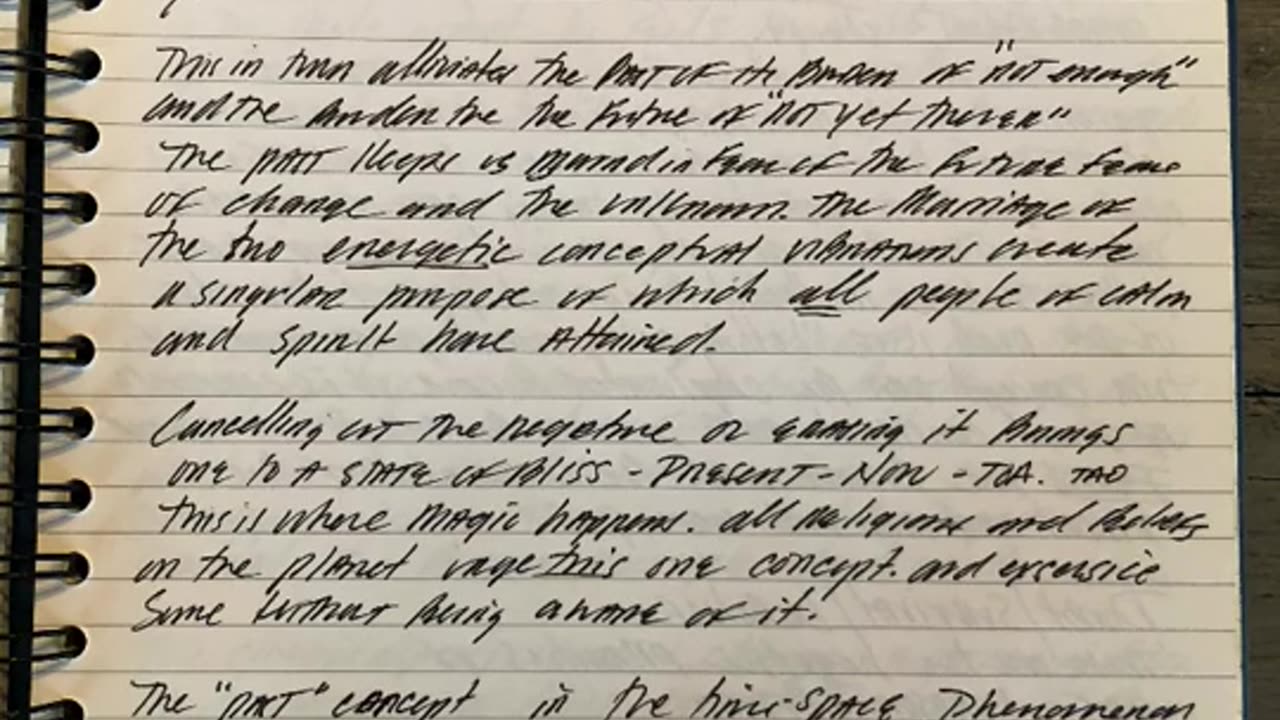 This in turn alliviates the PAST OF the Burden of "not enough"
and the burden the the Future of "not yet there"
The PAST Keeps us in Fear of the Future Fears
of change and the unknown. The Marriage of
the two energetic conceptual vibrations create
a singular purpose of which all people of calm
and spirit have Attained.
Cancelling out the negative or erasing it Brings
one to A STATE of Bliss - PRESENT - NOW - TOA. TAO
This is where Magic happens. all Religions and Beliefs
on the planet urge this one concept. and exsersice
Some without Being aware of it.
The "PAST" concept in the time-SPACE Phenomenon